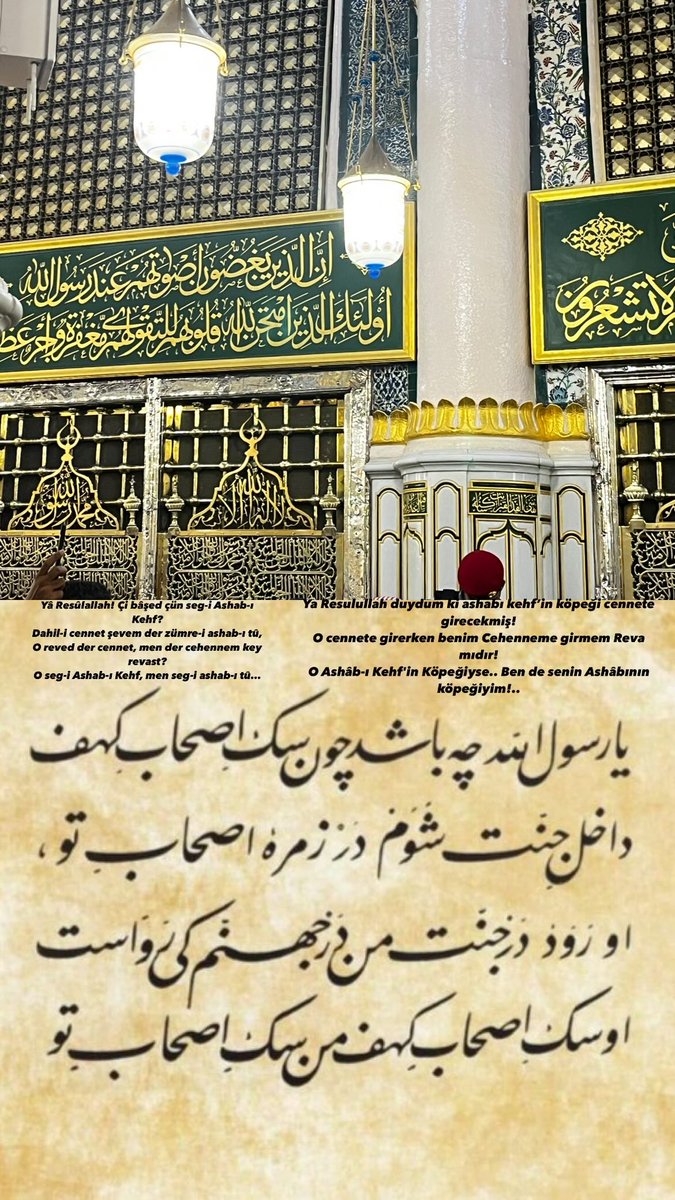 إن الذين يغضون أصواتهم عند رسول الله
أولئك الذين امتحن الله قلوبهم للتقوى لهم مغفرة وأجر
لا تشعرون
محمد رسول الله
لا إله إلا الله
Yâ Resûlallah! Çi bâşed çün seg-i Ashab-ı
Kehf?
Dahil-i cennet şevem der zümre-i ashab-ı tû,
O reved der cennet, men der cehennem key
revast?
O seg-i Ashab-ı Kehf, men seg-i ashab-ı tû...
Ya Resulullah duydum ki ashabı kehf'in köpeği cennete
girecekmiş!
O cennete girerken benim Cehenneme girmem Reva
mıdır!
O Ashâb-ı Kehf'in Köpeğiyse.. Ben de senin Ashâbının
köpeğiyim!..
یا رسول الله چه باشد چون سگِ اصحابِ کهف
داخلِ جنّت شَوَم دَر زمرهٔ اصحابِ تو ،
او رَوَد دَر جنّت من دَر جهنّم کی رَواست
او سگِ اصحابِ کهف من سگِ اصحابِ تو